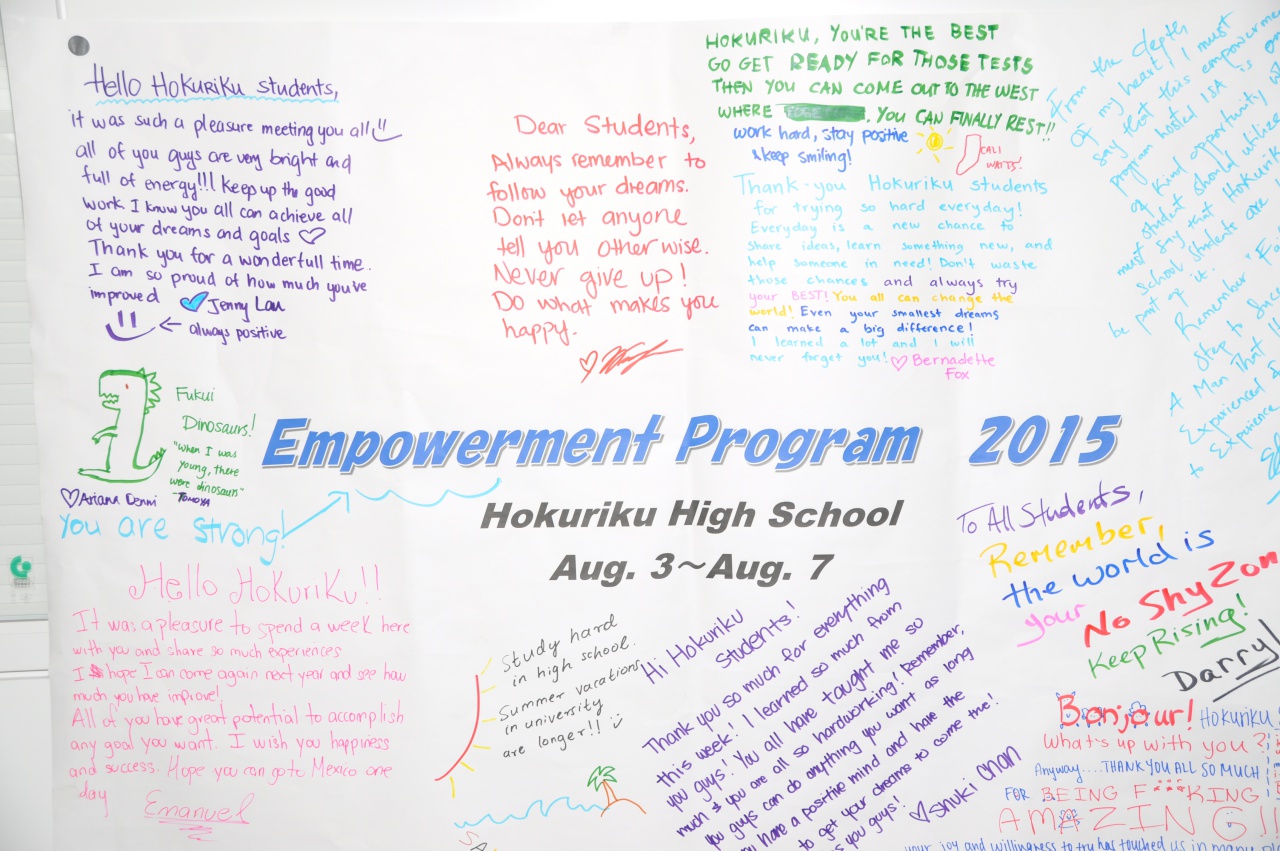 Hello Hokuriku students,
it was such a pleasure meeting you all
all of you guys are very bright and
full of energy!!! Keep up the good
work I know you all can achieve all
of your dreams and goals ♡
Thank you for a wonderfull time.
I am so proud of how much you've
improved ♡ Jenny Lau
← always positive
Dear Students,
Always remember to
follow your dreams.
Don't let anyone
tell you otherwise.
Never give up!
Do what makes you
happy.
HOKURIKU, YOU'RE THE BEST
GO GET READY FOR THOSE TESTS
THEN YOU CAN COME OUT TO THE WEST
WHERE , YOU CAN FINALLY REST!!
work hard, stay positive
& keep smiling!
CALI
WAITS!
Thank-you Hokuriku students
for trying so hard everyday!
Everyday is a new chance to
share ideas, learn something new, and
help someone in need! Don't waste
those chances and always try
your BEST! You all can change the
world! Even your smallest dreams
can make a big difference!
I learned a lot and I will
never forget you! ♡ Bernadette
Fox
From the depth
of my heart! I must
say that this empowerment
program hosted ISA is one
of kind opportunity
must student should utilize
must say that Hokuriku
School students are
be part of it.
Remember
Step to
A Man That
Experienced
to Experience
Fukui
Dinosaurs!
"When I was
young, there
were dinosaurs"
-TOMOYA
♡Ariana Denni
You are strong!
Empowerment Program 2015
Hokuriku High School
Aug. 3~Aug. 7
Hello HoKuriKu!!
It was a pleasure to spend a week here
with you and share so much experiences
I hope I can come again next year and see how
much you have improve!
All of you have great potential to accomplish
any goal you want. I wish you happiness
and success. Hope you can go to Mexico one
day
Emanuel
Study hard
in high school.
Summer vacations
in university
are longer!!
Hi Hokuriku
Students!
Thank you so much for everything
this week! I learned so much from
you guys! You all have taught me so
much & you are all so hardworking! Remember,
you guys can do anything you want as long
you have a positive mind and have the
to get your dreams to come true!
you guys!
♡Shuki Chan
To All Students,
Remember,
the world is
your No Shy Zon
Keep Rising!
Darryl
Bonjour! HOKURIKU
What's up with you?
Anyway....THANK YOU ALL SO MUCH
FOR BEING F***KING
AMAZING!!
your joy and willingness to try has touched us in many